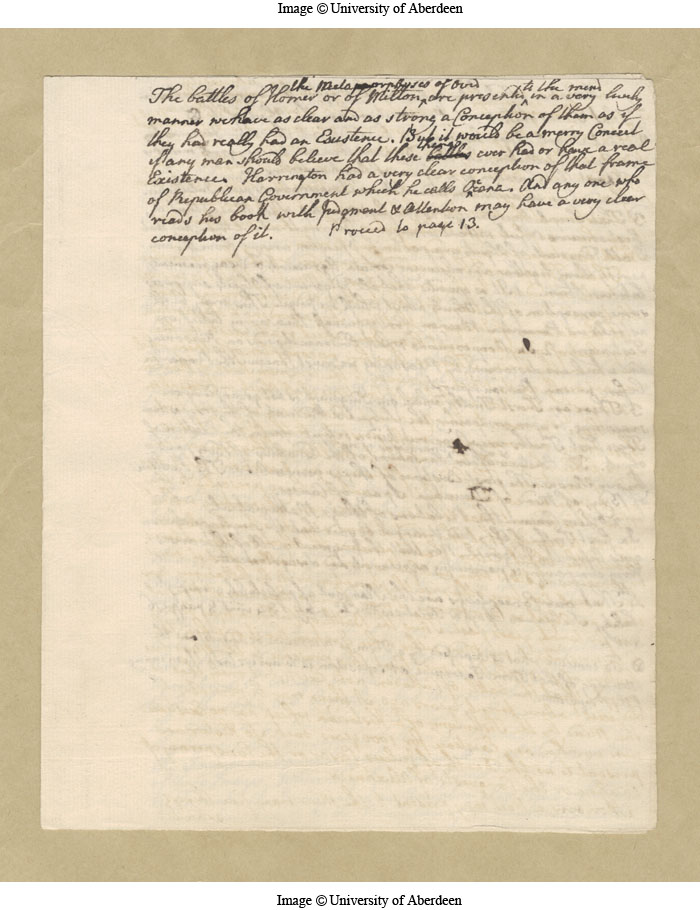 Image © University of Aberdeen
the Metamorphyses of Ovid to the mind
The battles of Homer or of Milton are presented in a very lively
manner we have as clear and as strong a Conception of them as if
they had really had an Existence. But it would be a merry Conceit
if any man should believe that these battles ever had or have a real
Existence. Harrington had a very clear conception of that frame
of Republican Government which he calls Oceana. And any one who
reads his book with Judgment & Attention may have a very clear
conception of it. Proceed to page 13.
Image © University of Aberdeen